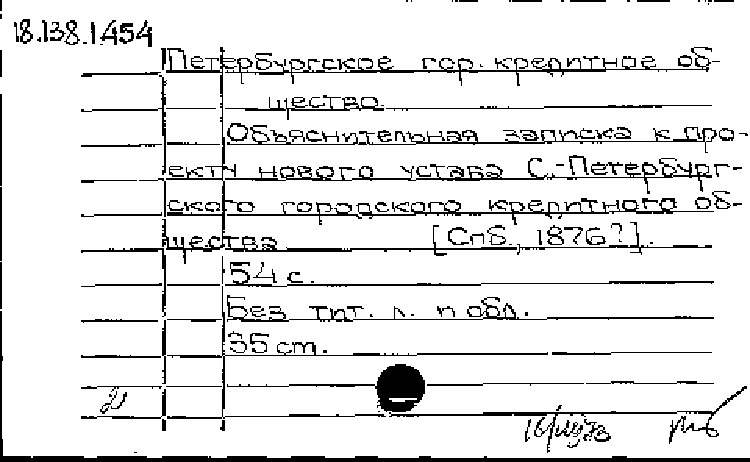 18.138.1.454
Петербургское гор. кредитное об-
щество
Объяснительная записка к про-
екту нового устава С.-Петербург-
ского городского кредитного об-
щества [Спб., 1876?].
54 с.
Без тит. л. и обл.
35 см.